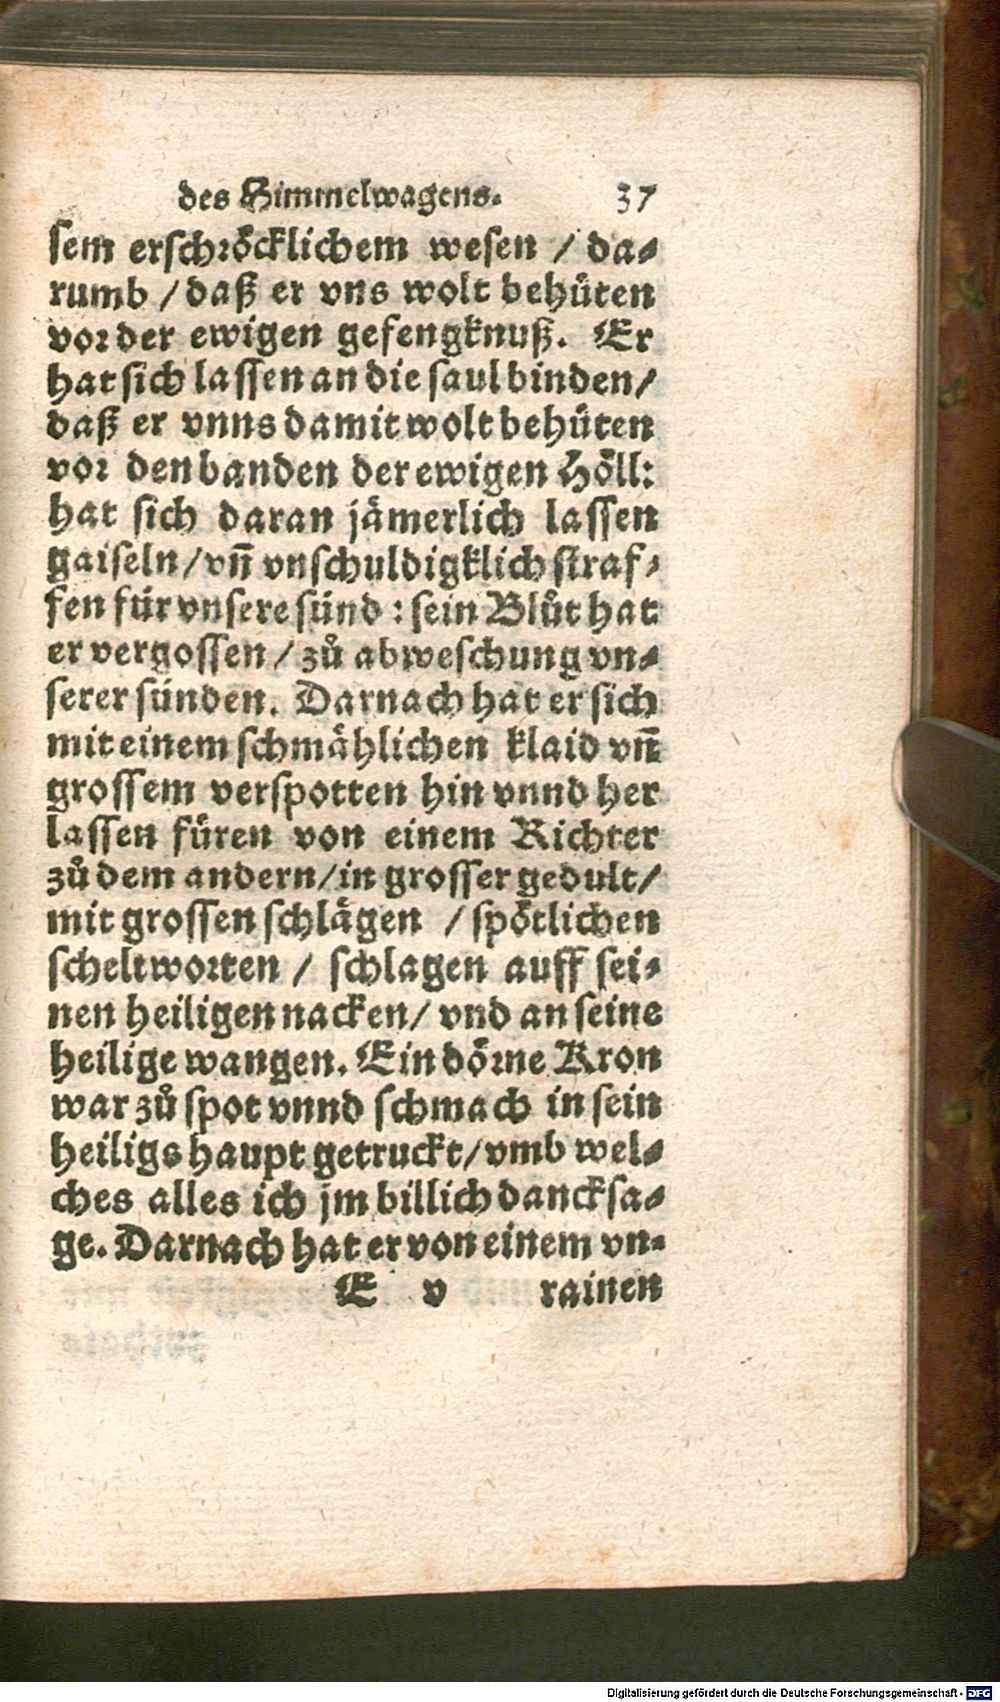 des Himmelwagens. 37
sem erschröcklichem wesen / da-
rumb / daß er vns wolt behüten
vor der ewigen gefengknuß. Er
hat sich lassen an die saul binden /
daß er vnns damit wolt behüten
vor den banden der ewigen Höll:
hat sich daran jämerlich lassen
gaiseln / vñ vnschuldigklich straf-
fen für vnsere sünd : sein Blůt hat
er vergossen / zů abweschung vn-
serer sünden. Darnach hat er sich
mit einem schmählichen klaid vñ
grossem verspotten hin vnnd her
lassen füren von einem Richter
zů dem andern / in grosser gedult /
mit grossen schlägen / spötlichen
scheltworten / schlagen auff sei-
nen heiligen nacken / vnd an seine
heilige wangen. Ein dörne Kron
war zů spot vnnd schmach in sein
heiligs haupt getruckt / vmb wel-
ches alles ich jm billich dancksa-
ge. Darnach hat er von einem vn-
E v rainen
Digitalisierung gefördert durch die Deutsche Forschungsgemeinschaft - DFG